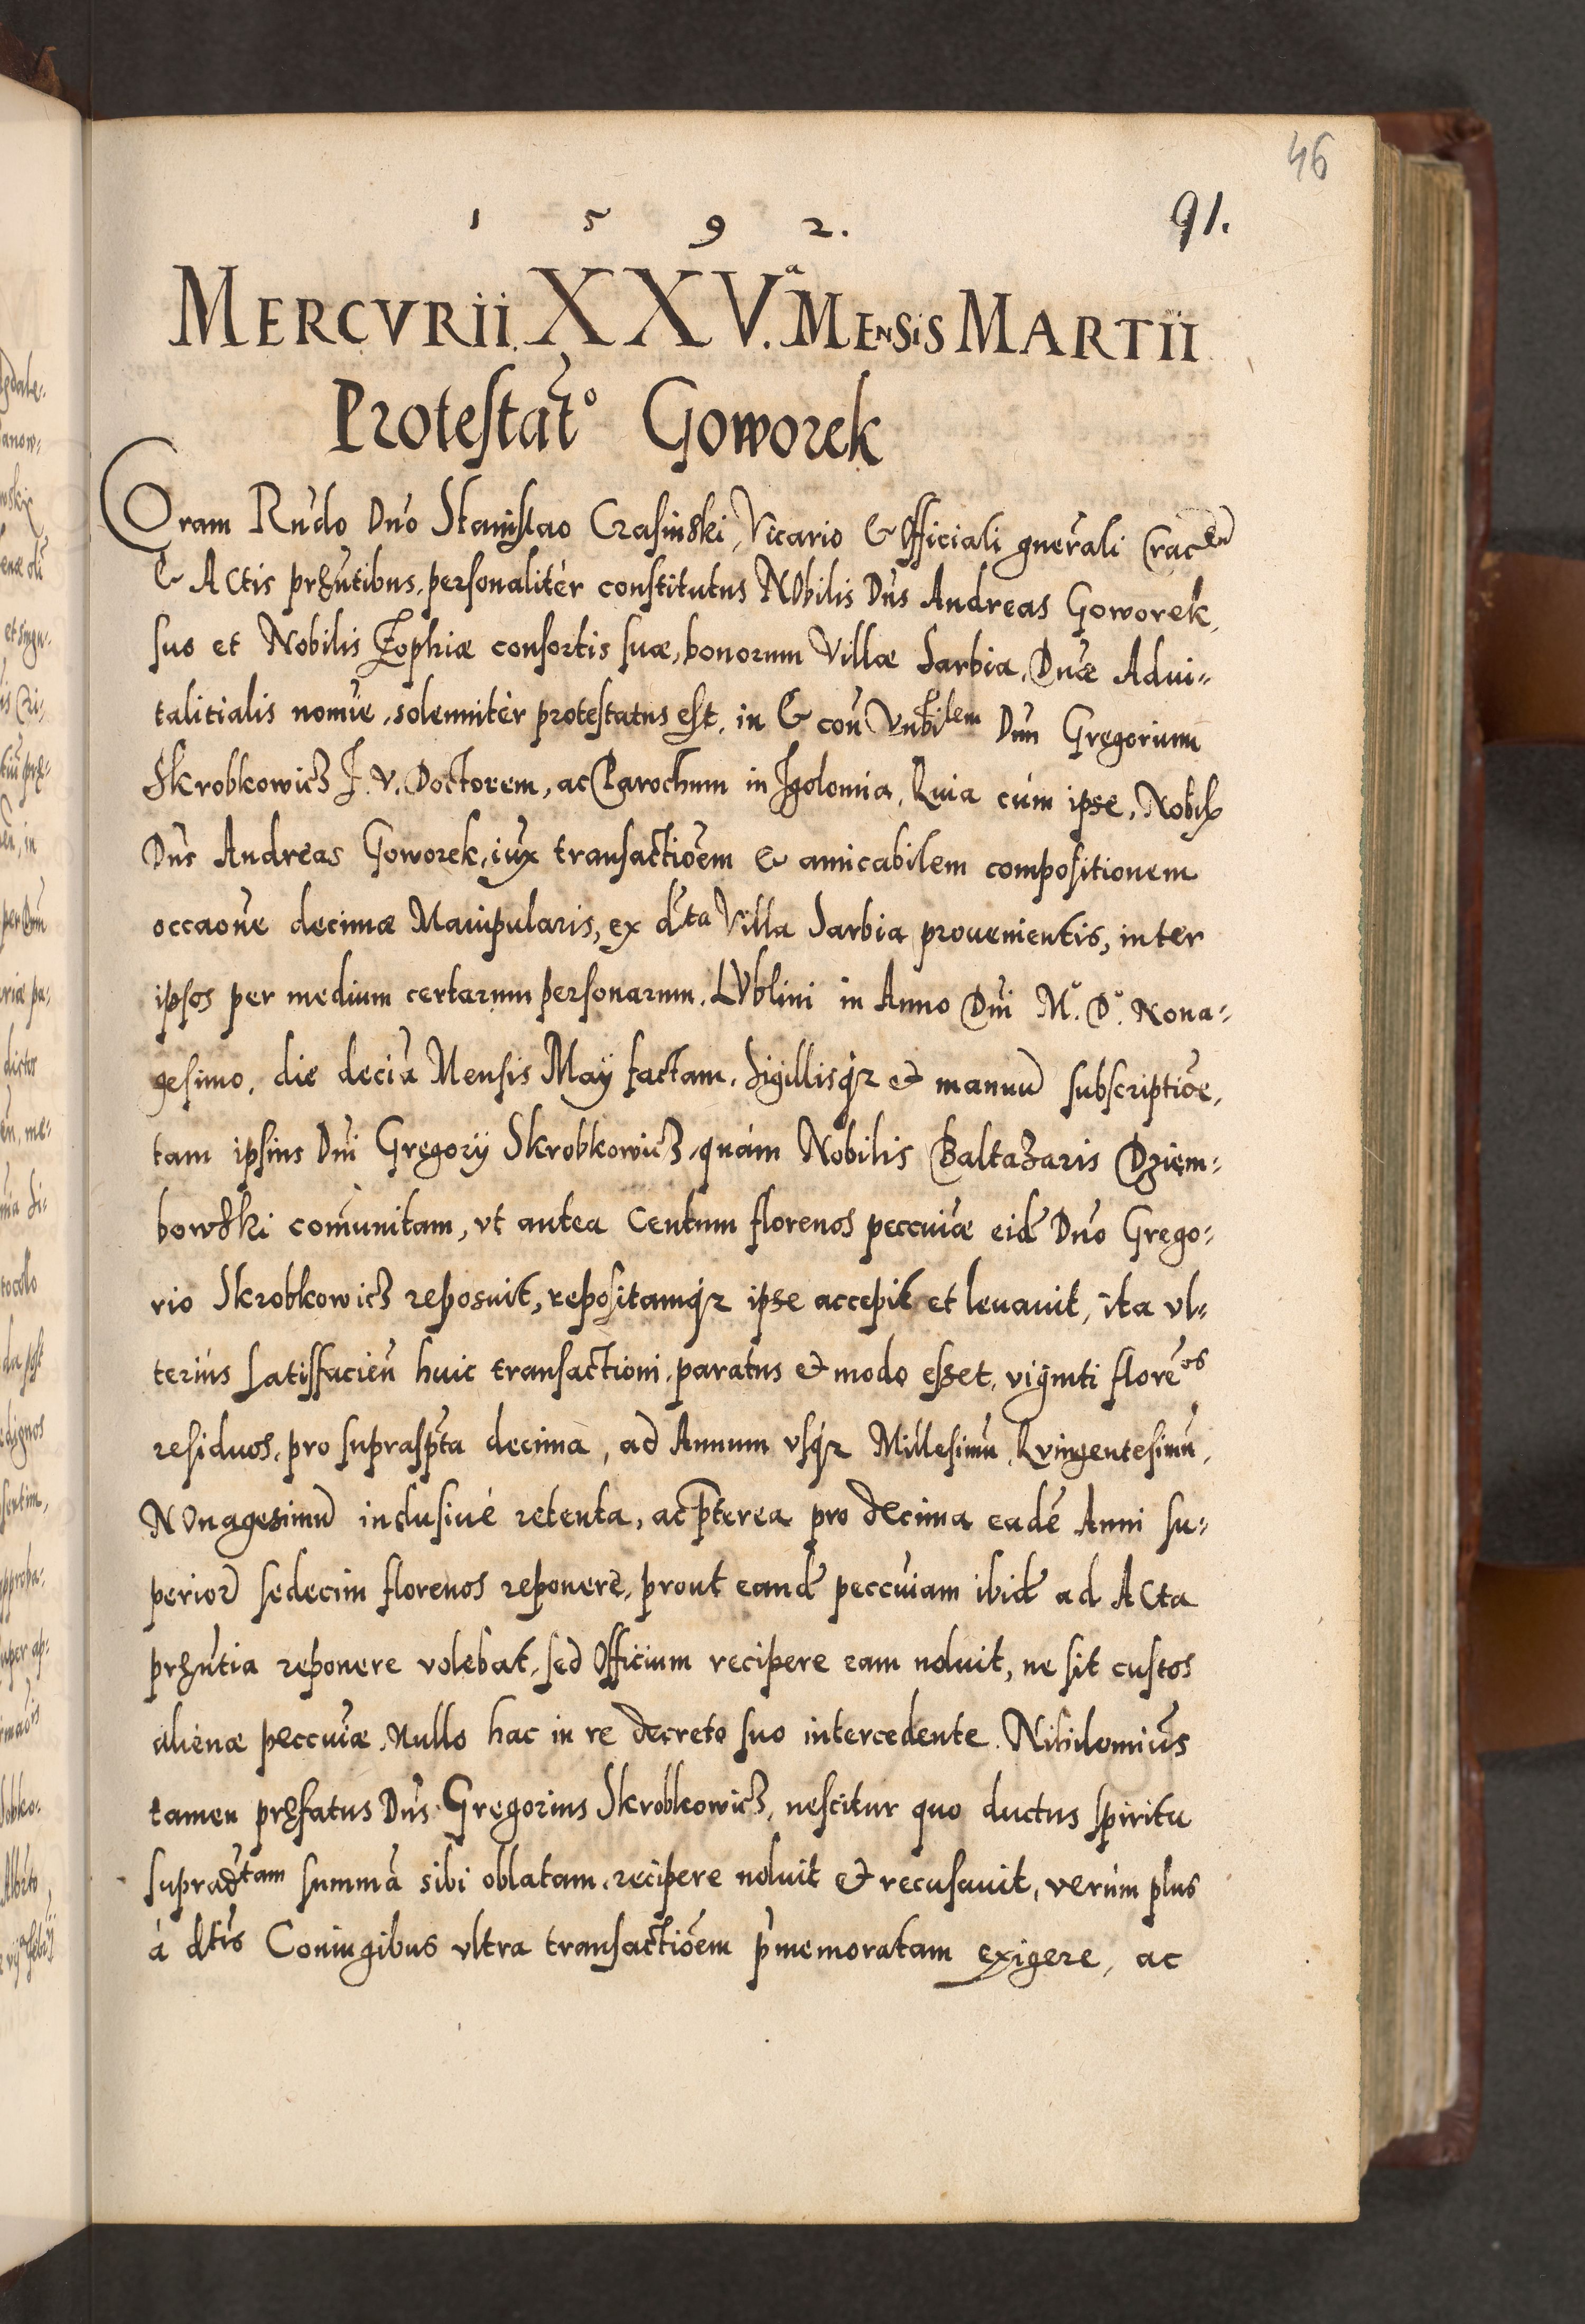 46
91.
1 5 9 2.
MERCVRII. XXV.ª MENSIS MARTII
Protestat͠o Goworek
Coram Rn̄do Dn̄o Stanislao Crasinski, Vicario & Officiali gn̄erali Cracen̄
& Actis præn̄tibus, personalitèr constitutus NObilis Dn̄s Andreas Goworek,
suo et Nobilis Zophiæ consortis suæ, bonorum Villæ Sarbia, Dn̄æ Advi=
talitialis nomīe, solemnitèr protestatus est, in & con̄ Vn̄bilem Dn̄m Gregorium
Skrobkowicz J. V. Doctorem, ac Parochum in Jgolomia, Quia cùm ipse, Nobil
Dn̄s Andreas Goworek, iux transactiōem & amicabilem compositionem
occaōne decimæ Manipularis, ex d̄ta Villa Sarbia prouenientis, inter
ipsos per medium certarum personarum, LVblini in Anno Dn̄i M.° D.° Nona=
gesimo, die deciā Mensis Maÿ factam, Sigillisq̨ & manuū subscriptiōe,
tam ipsius Dn̄i Gregorÿ Skrobkowicz, quàm Nobilis Baltazaris Dziem=
bowski com̄unitam, vt antea Centum florenos peccuīæ eid̄ Dn̄o Grego=
rio Skrobkowicz reposuit, repositamq̨ ipse accepit et leuauit, ita vl=
teriùs satisfacien̄ huic transactioni, paratus & modo esset, viginti florēos
residuos, pro supraspt̄a decima, ad Annum vsq̨ Millesimū, Quingentesimū,
NOnagesimū inclusiuè retenta, ac pt̄erea pro decima eadē Anni su=
perior̄ sedecim florenos reponere, prout eand̄ peccuīam ibid̄ ad ACta
præn̄tia reponere volebat, sed Officium recipere eam noluit, ne sit custos
alienæ peccuīæ, nullo hac in re decreto suo intercedente. Nihilomiūs
tamen præfatus Dn̄s Gregorius Skrobkowicz, nescitur quo ductus spiritu
suprad̄tam summā sibi oblatam, recipere noluit & recusauit, verùm plus
à d̄tis Coniugibus vltra transactiōem p̄memoratam exigere, ac